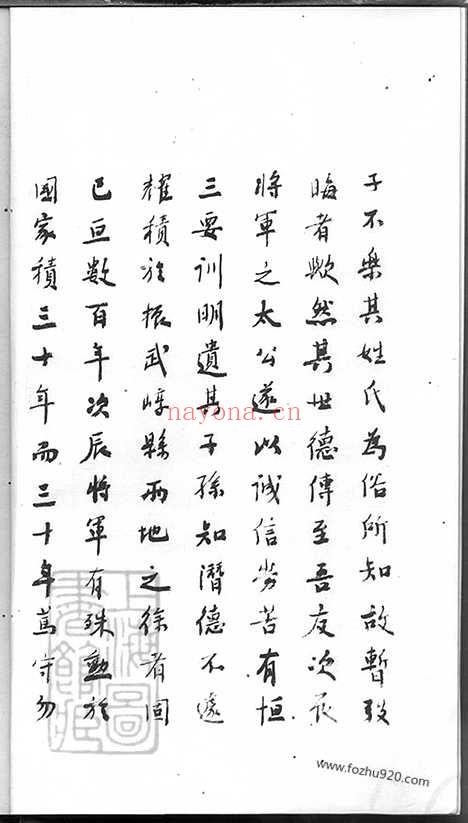 子不樂其姓氏為俗所知故暫致
晦者歟然其世德傳至吾友次辰
將軍之太公遂以誠信勞苦有恒
三要訓明遺其子孫知潛德不遽
耀積於振武崞縣兩地之徐者固
已亘數百年次辰將軍有殊勳於
國家積三十年而三十年篤守勿
上海圖書館藏
nayona.cn
www.fozhu920.com